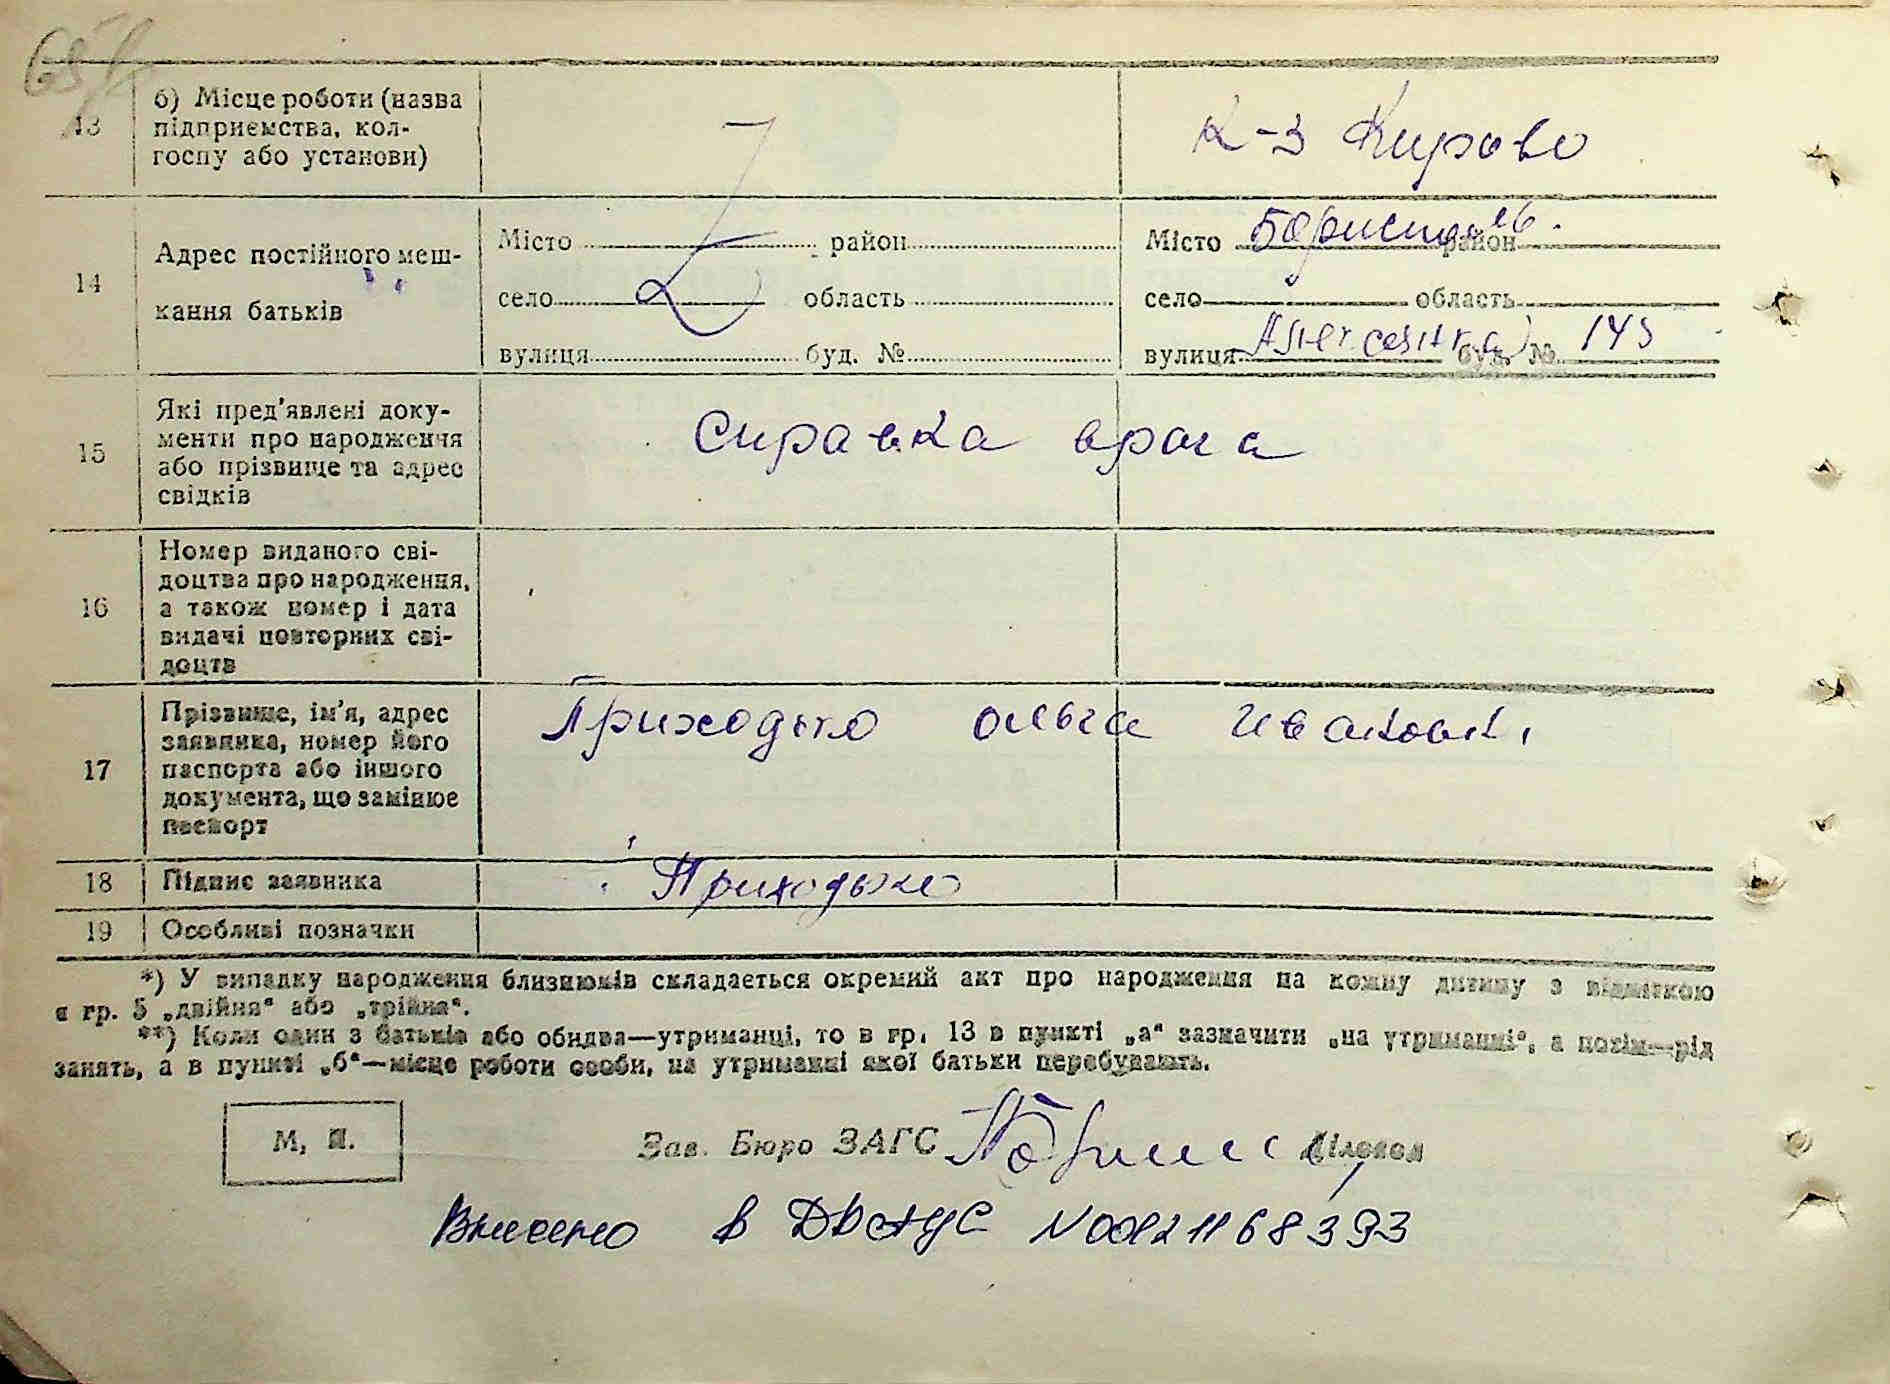 13
б) Місце роботи (назва
підприємства, кол-
госпу або установи)
К-з Кирово
14
Адрес постійного меш-
кання батьків
Місто район
село область
вулиця буд. №
Місто Бориспіль район
село область
вулиця буд. № 143
15
Які пред'явлені доку-
менти про народження
або прізвище та адрес
свідків
Справка врача
16
Номер виданого сві-
доцтва про народження,
а також номер і дата
видачі повторних сві-
доцтв
17
Прізвище, ім'я, адрес
заявника, номер його
паспорта або іншого
документа, що замінює
паспорт
Приходько Ольга Ивановн.
18
Підпис заявника
Приходько
19
Особливі позначки
*) У випадку народження близнюків складається окремий акт про народження на кожну дитину з відміткою
в гр. 5 „двійня“ або „трійня“.
**) Коли один з батьків або обидва—утриманці, то в гр. 13 в пункті „а“ зазначити „на утриманні“, а потім—рід
занять, а в пункті „б“—місце роботи особи, на утриманні якої батьки перебувають.
М. П.
Зав. Бюро ЗАГС Діловод
Внесено в ДРАЦС N00121168393